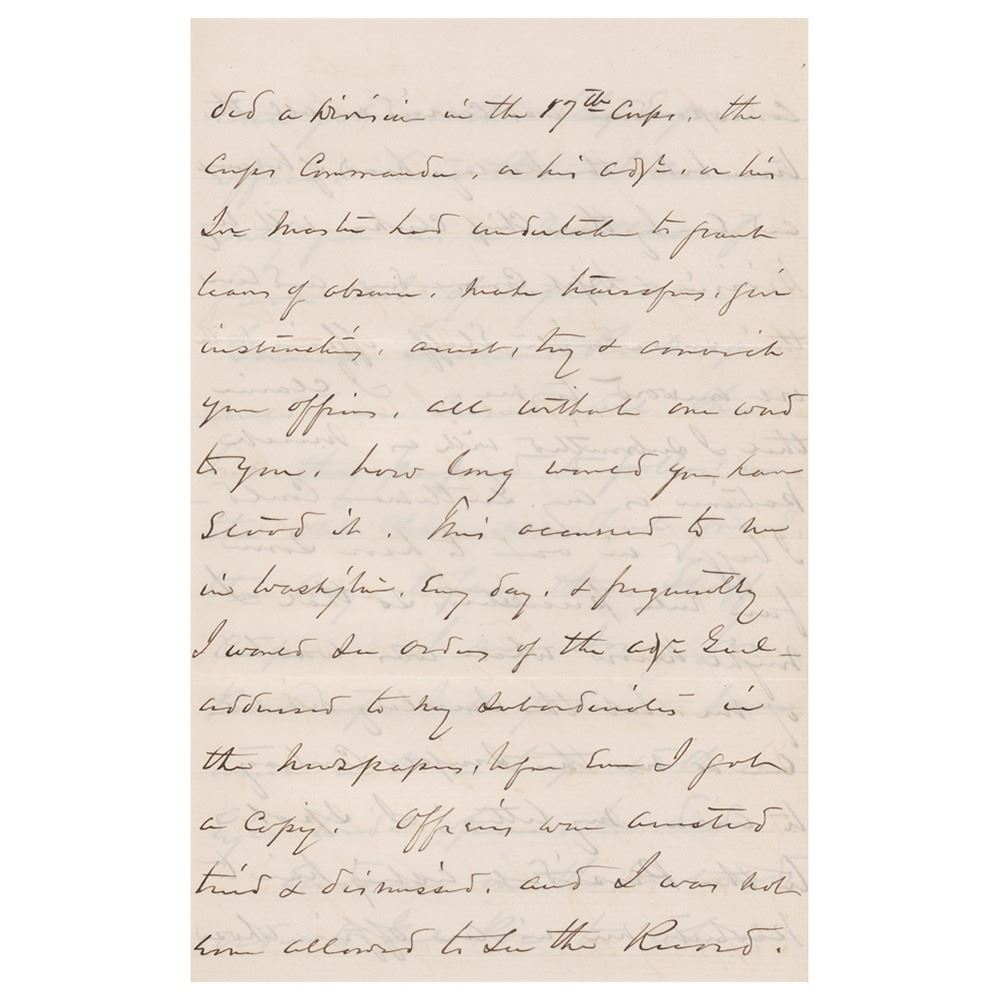 ded a Division in the 17th Corps. the
Corps Commander, or his adjt. or his
Qr Master had undertaken to grant
leaves of absence, make transfers, give
instructions, arrest, try & convict
your officers, all without one word
to you, how long would you have
stood it. This occurred to me
in Washgtn. Every day, & frequently
I would see orders of the adjt Genl
addressed to my subordinates in
the newspapers, before Even I got
a Copy. Officers were arrested
tried & dismissed, and I was not
even allowed to see the Record.